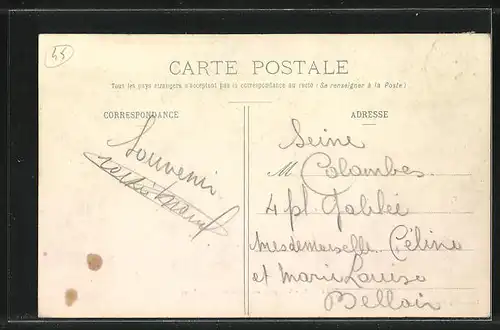 55
CARTE POSTALE
Tous les pays étrangers n'acceptent pas la correspondance au recto (Se renseigner à la Poste)
CORRESPONDANCE
ADRESSE
Souvenir
Seine
M Colombes
4 pl. Galilée
Mesdemoiselle Céline
et Marie Louise
Bellair